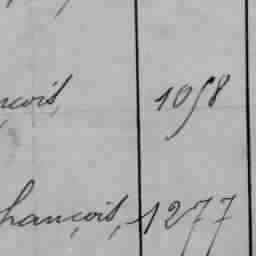 çois, 1058
François, 1277